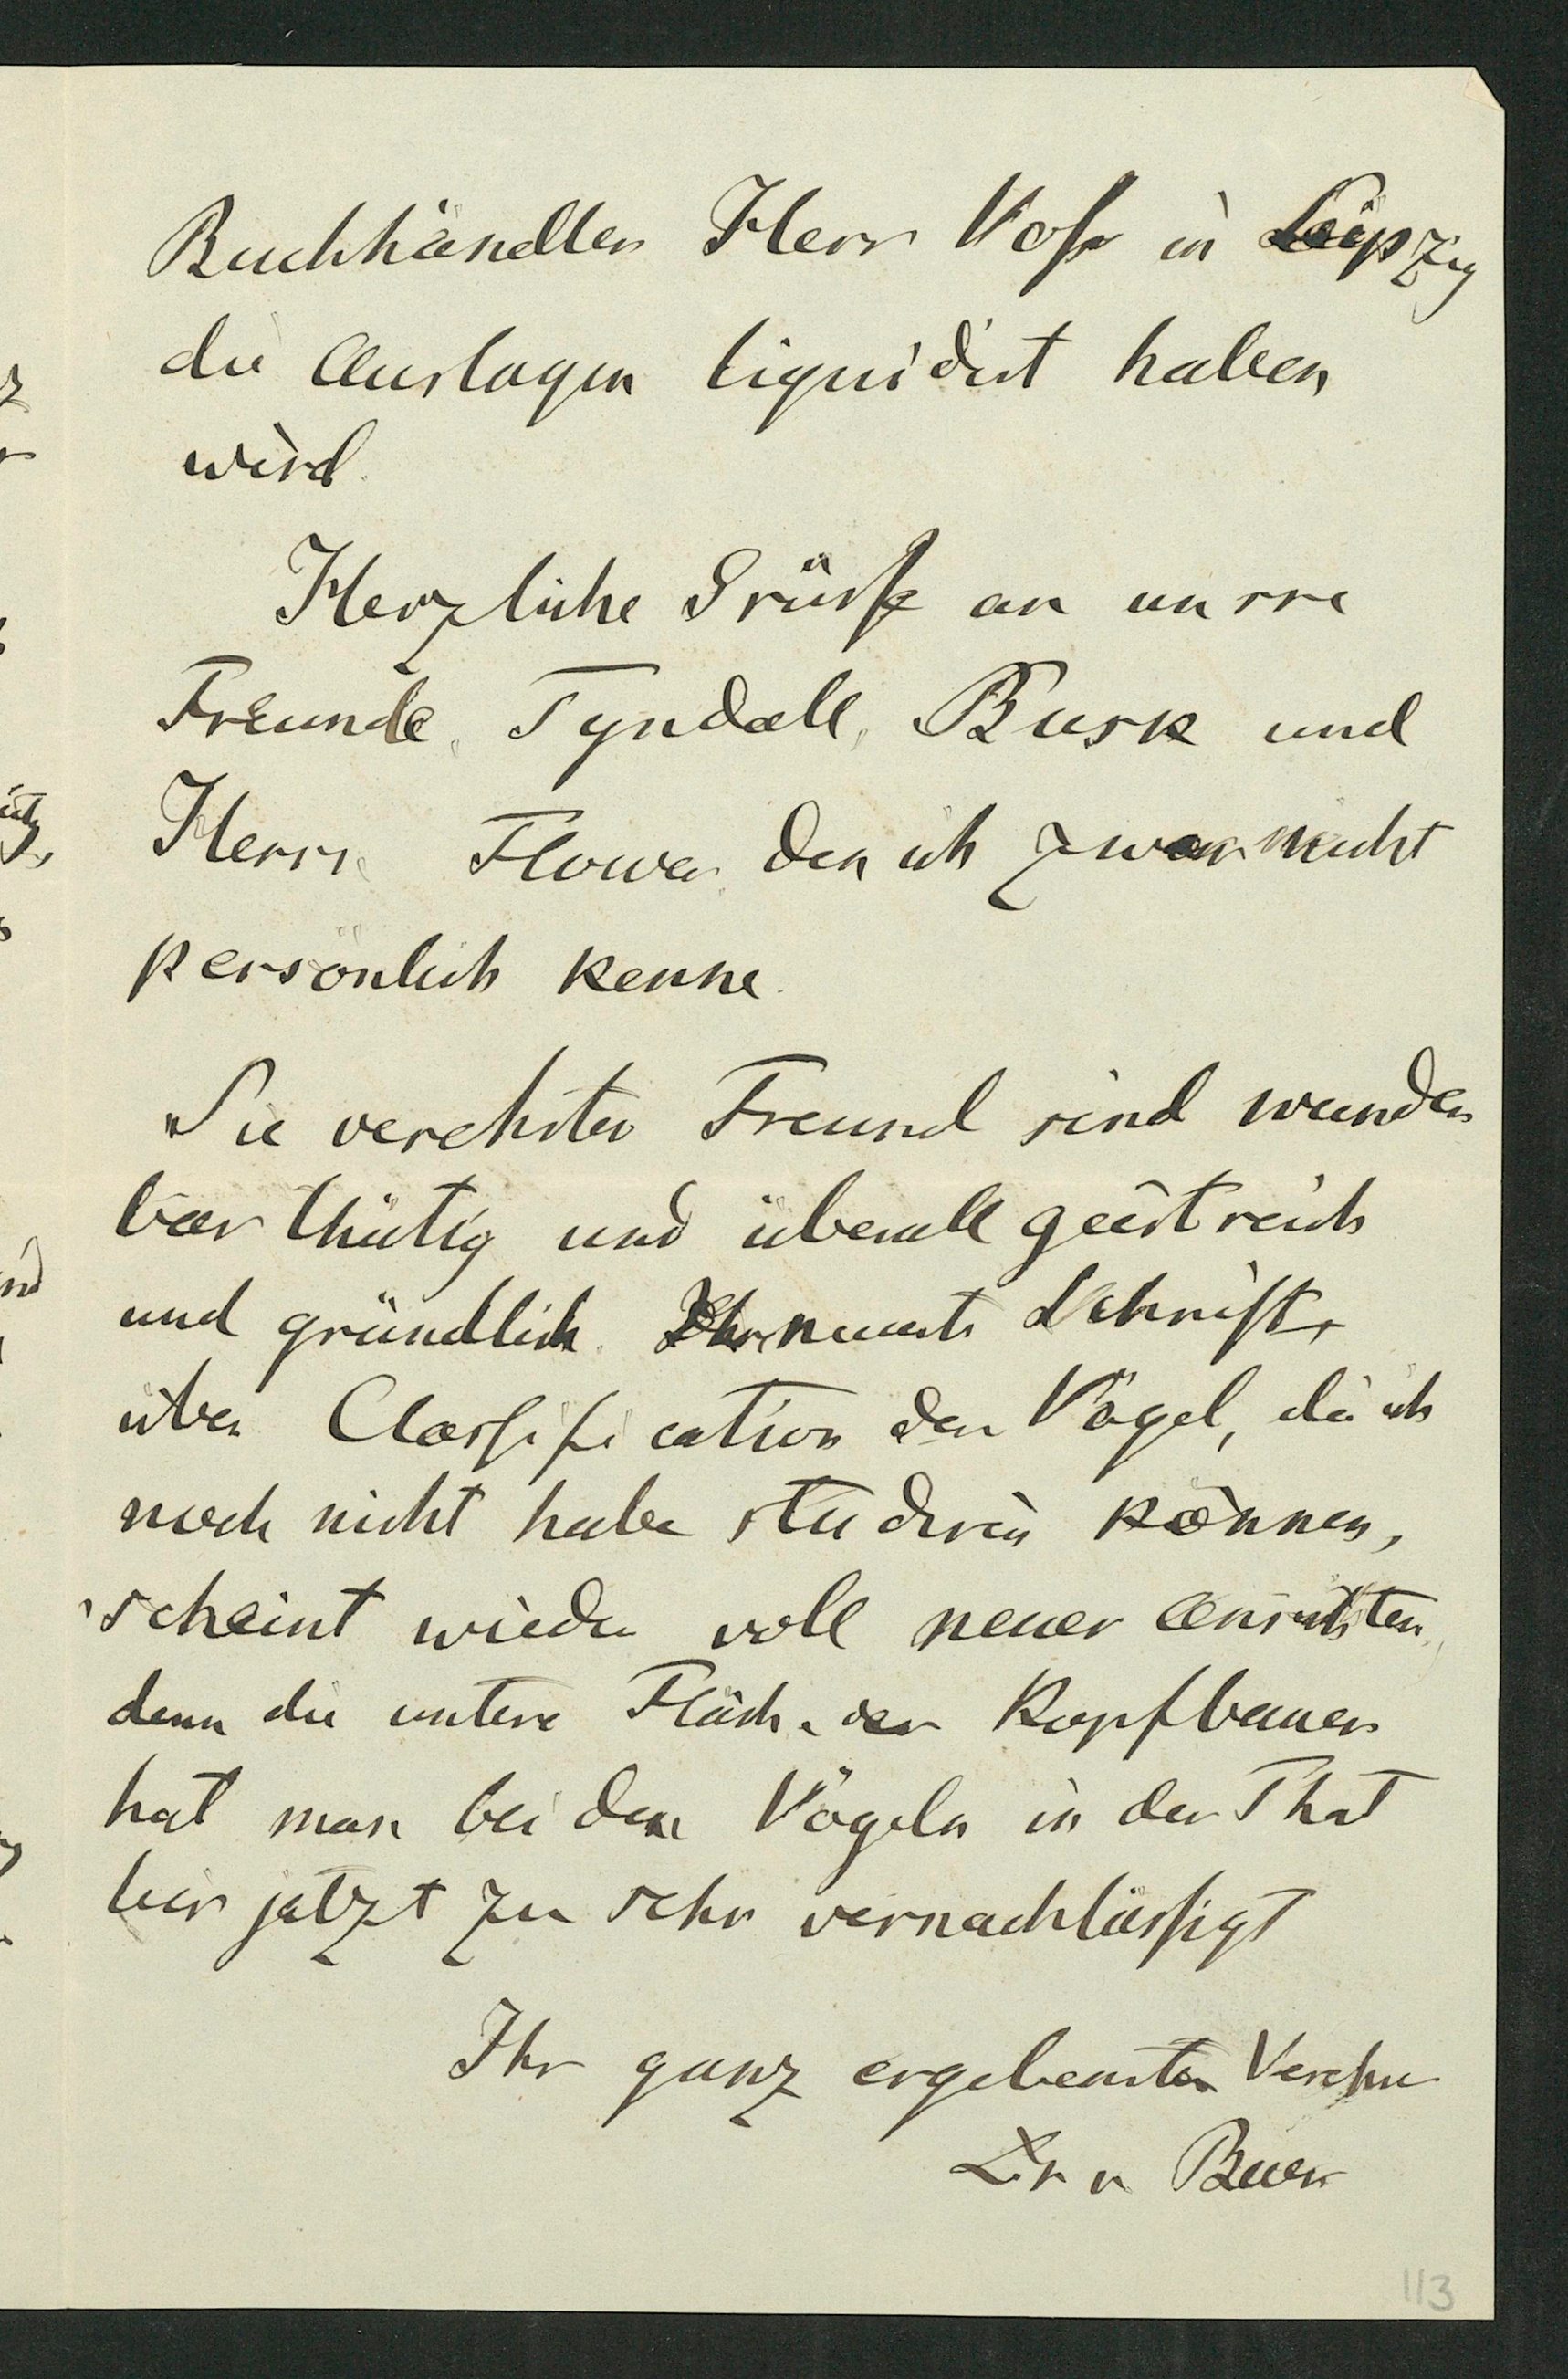 Buchhändler Herr Voß in Leipzig
die Auslagen liquidirt haben
wird.
Herzliche Grüße an unsre
Freunde, Tyndall, Busk und
Herrn Flower, den ich zwar nicht
persönlich kenne.
Sie verehrter Freund sind wunder
bar thätig und überall geistreich
und gründlich. Ihre neuste Schrift,
über Classification der Vögel, die ich
noch nicht habe studiren können,
scheint wieder voll neuer Ansichten,
denn die untere Fläche der Kopfbauer
hat man bei den Vögeln in der That
bis jetzt zu sehr vernachlässigt
Ihr ganz ergebenster Verehrer
Dr v Baer
113